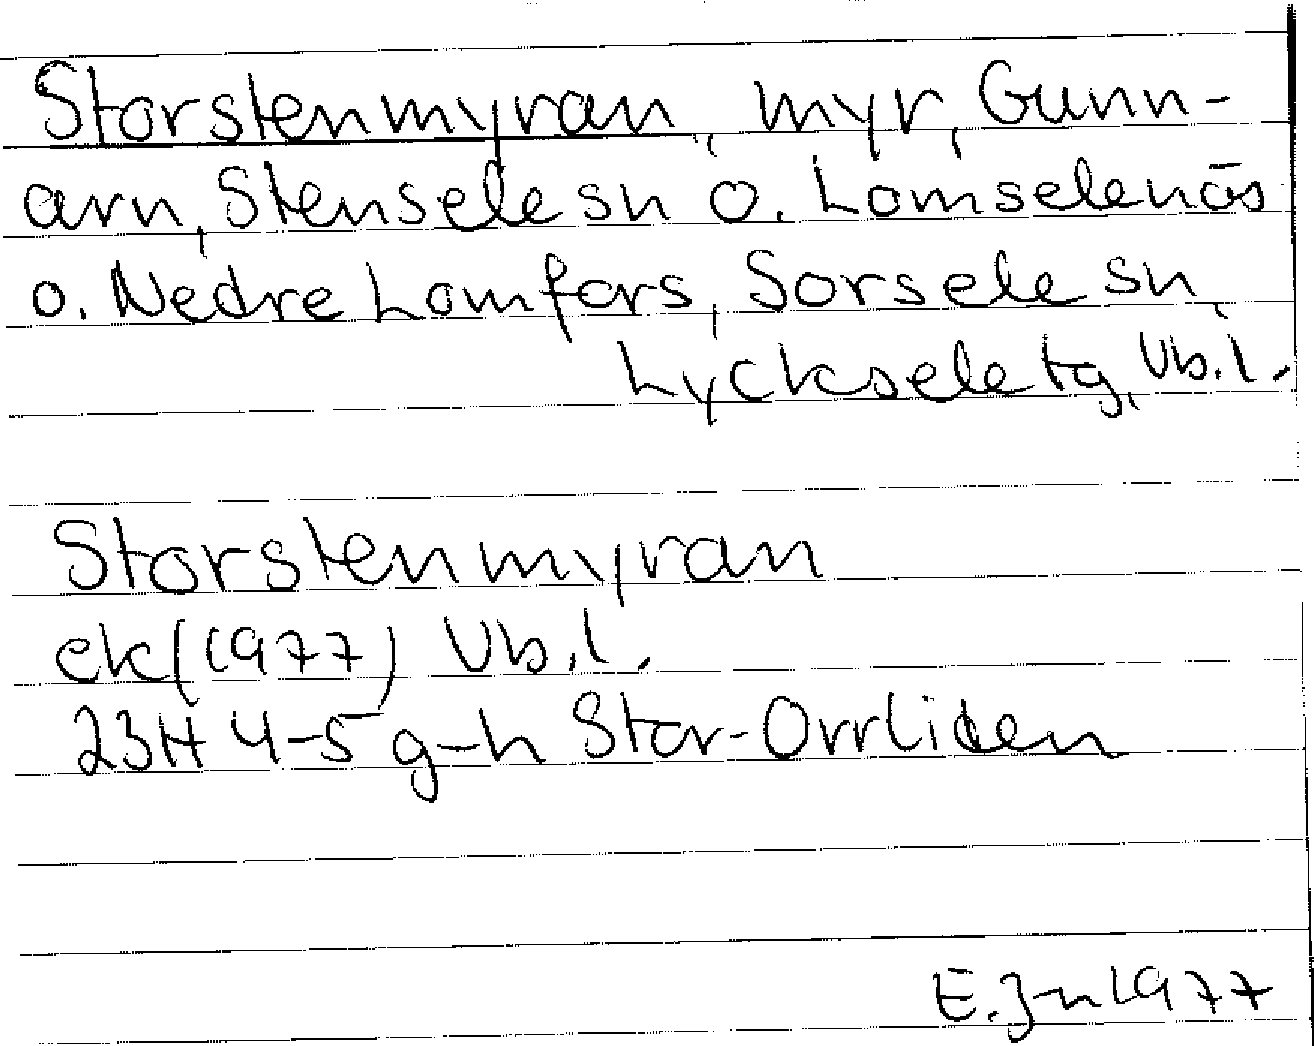 Storstenmyran, myr, Gunn-
arn, Stensele sn o. Lomselenäs
o. Nedre Lomfors, Sorsele sn,
Lycksele tg, Vb.l.
Storstenmyran
ek (1977) Vb.l.
23H 4-5 g-h Stor-Orrliden
E. Jn 1977